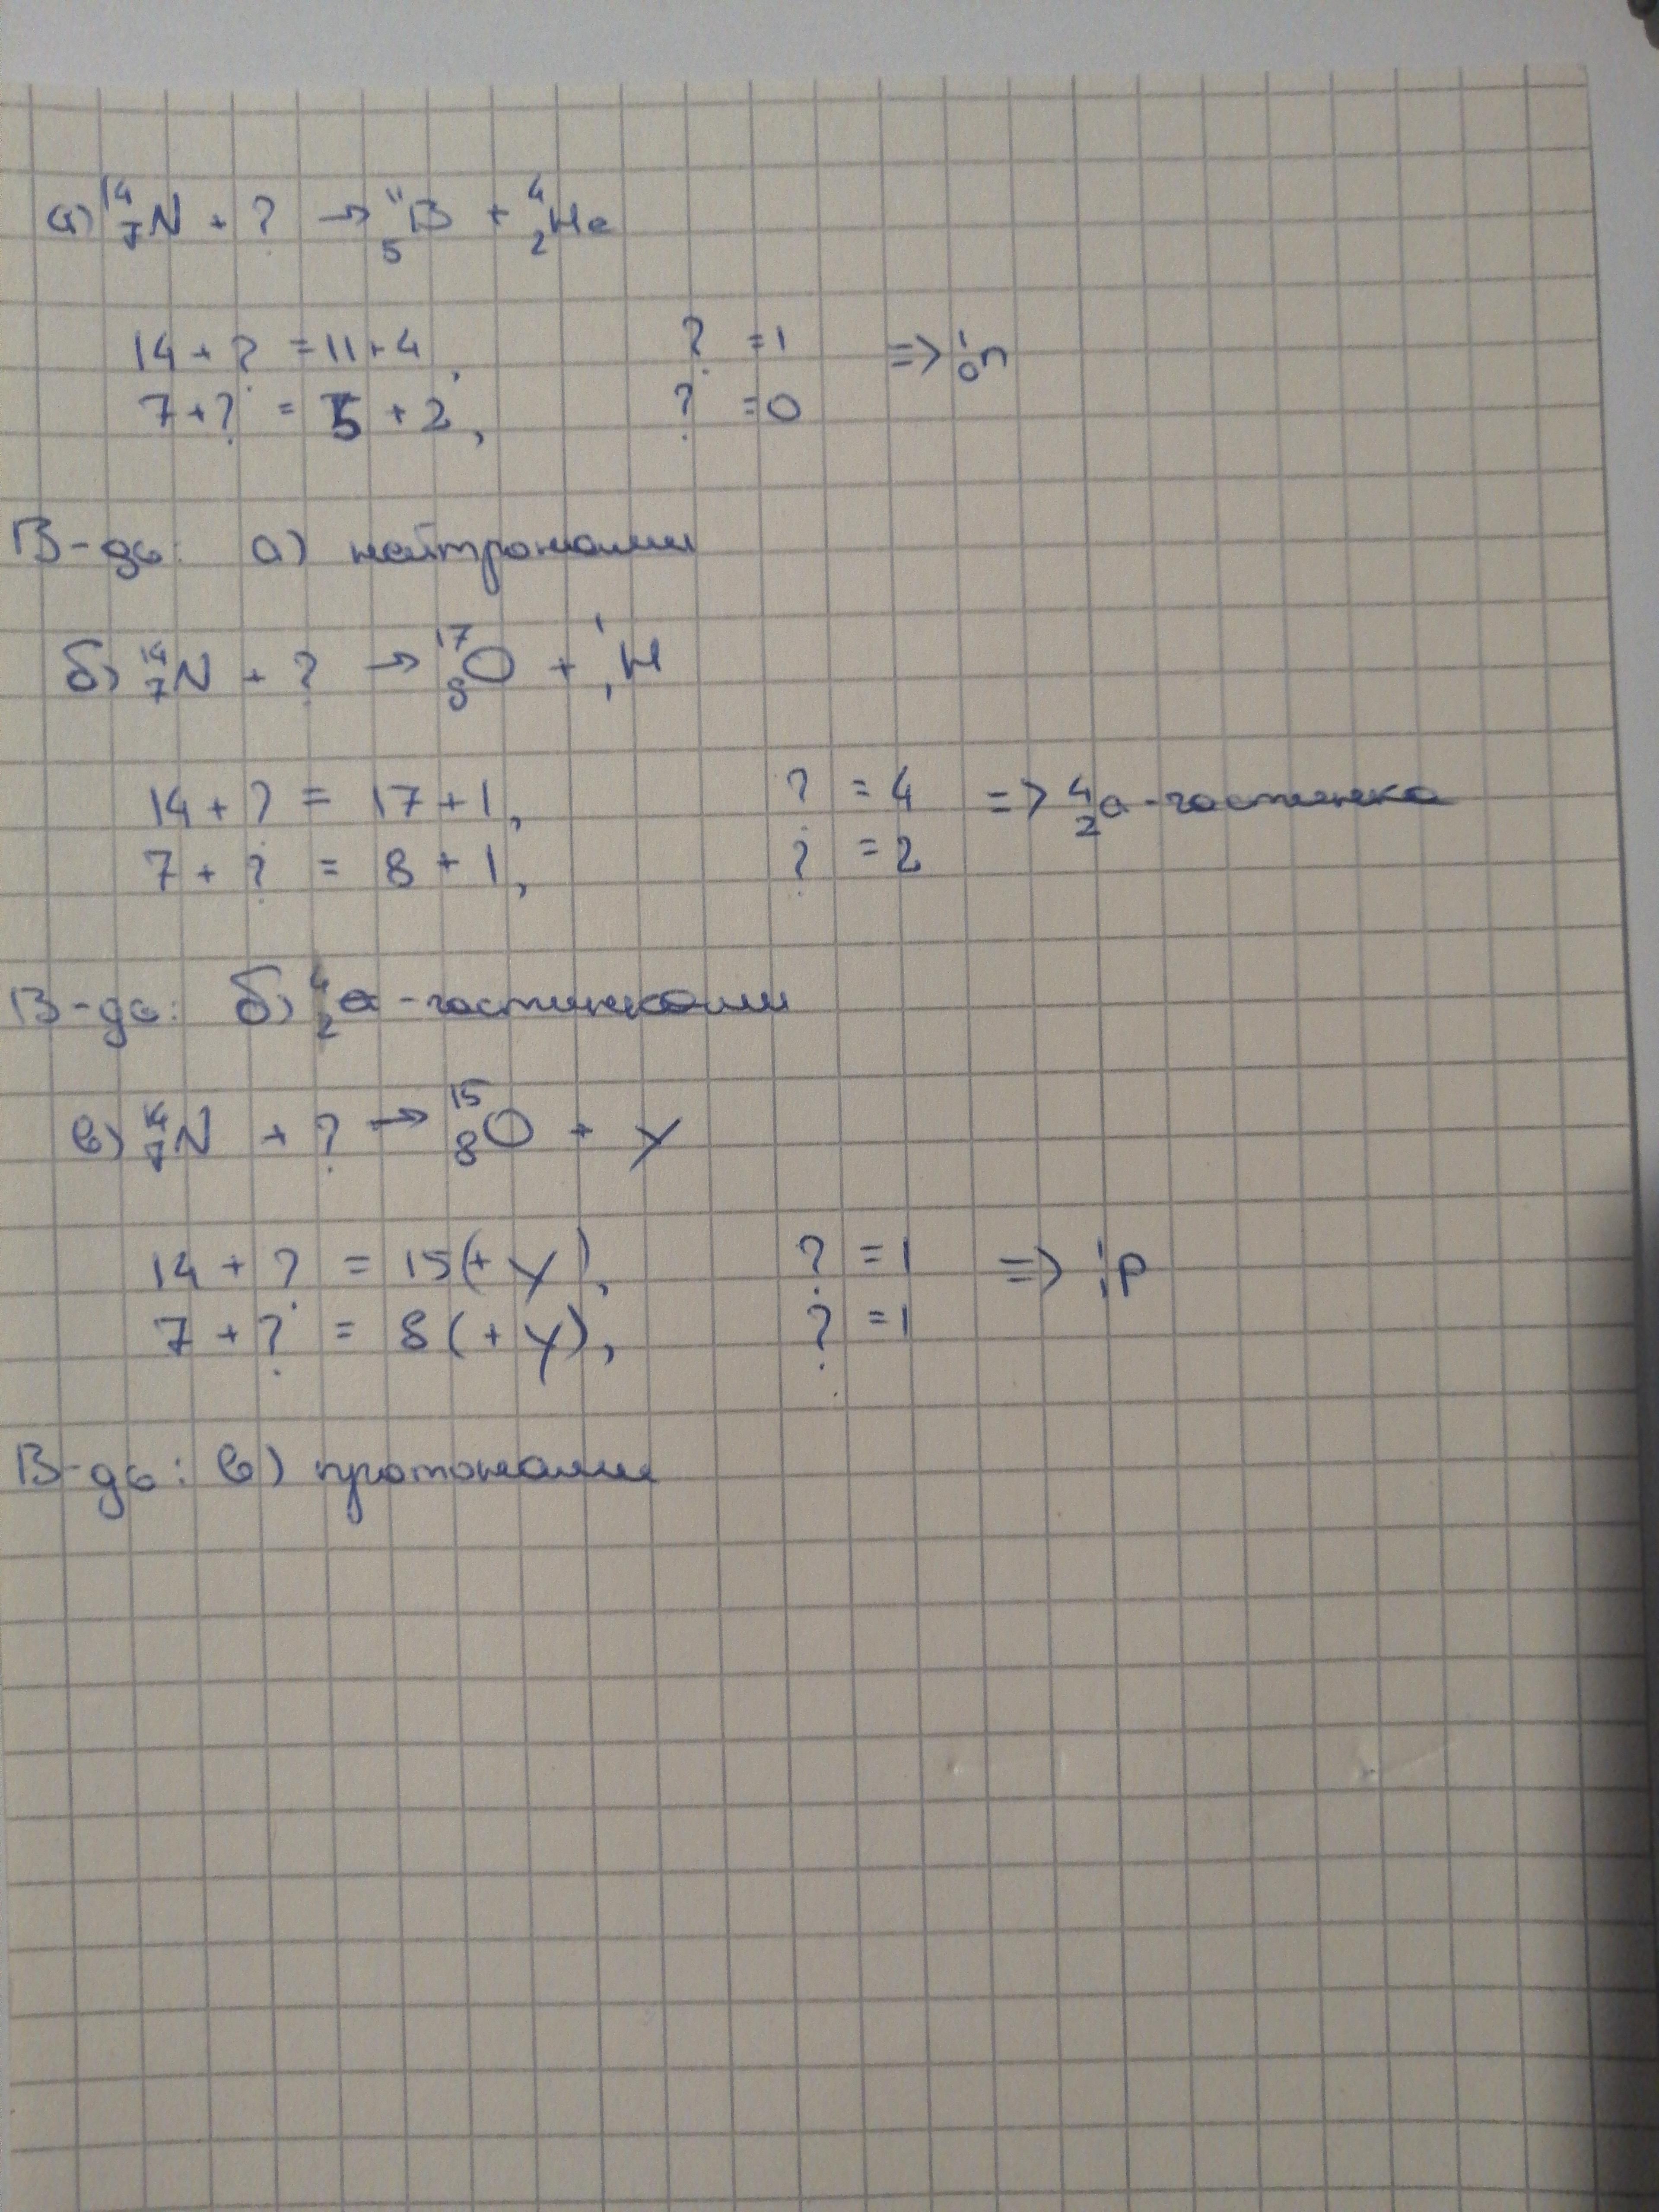 а) ¹⁴₇N + ? → ¹¹₅B + ⁴₂He
14 + ? = 11 + 4, ? = 1 => ¹₀n
7 + ? = 5 + 2, ? = 0
В-дь: а) нейтронами
б) ¹⁴₇N + ? → ¹⁷₈O + ¹₁H
14 + ? = 17 + 1, ? = 4 => ⁴₂α - частинка
7 + ? = 8 + 1, ? = 2
В-дь: б) ⁴₂α - частинками
в) ¹⁴₇N + ? → ¹⁵₈O + γ
14 + ? = 15 (+ γ), ? = 1 => ¹₁p
7 + ? = 8 (+ γ), ? = 1
В-дь: в) протонами